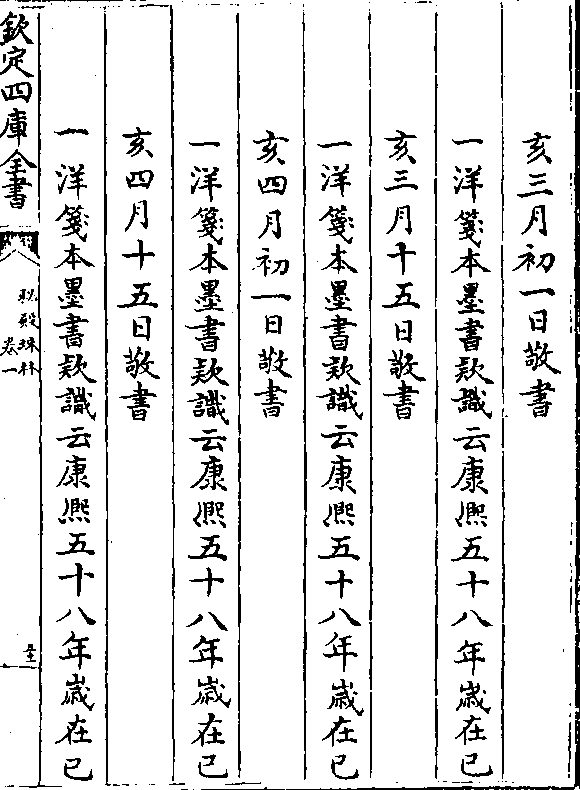 亥三月初一日敬書
一洋箋本墨書款識云康熙五十八年歲在已
亥三月十五日敬書
一洋箋本墨書款識云康熙五十八年歲在已
亥四月初一日敬書
一洋箋本墨書款識云康熙五十八年歲在已
亥四月十五日敬書
一洋箋本墨書款識云康熙五十八年歲在已
欽定四庫全書
秘殿珠林
卷一